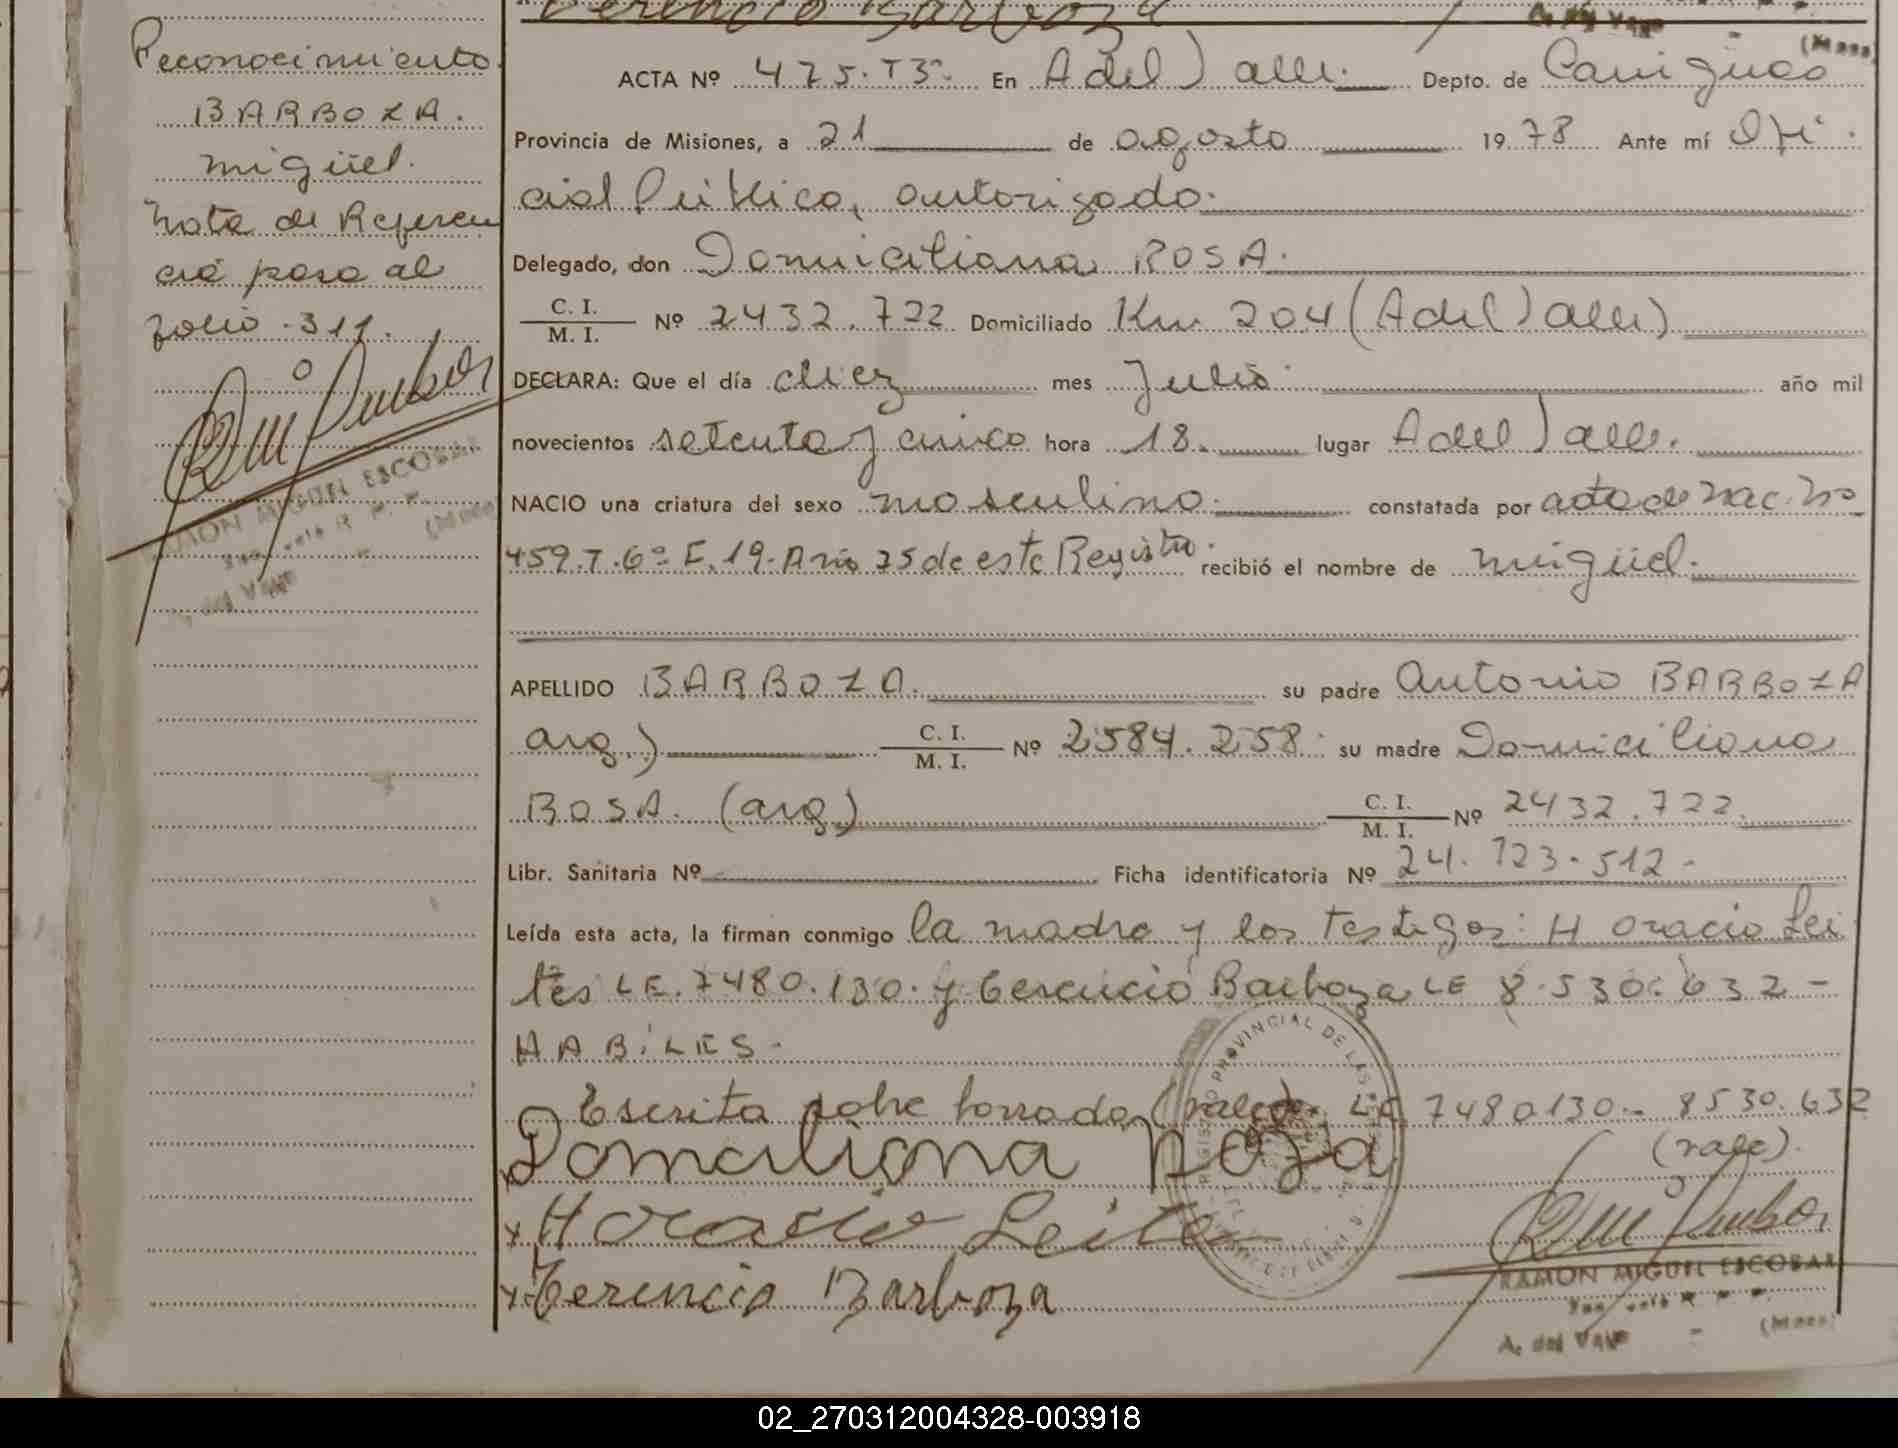 Reconocimiento
BARBOZA.
Migüel.
Nota de Referen
cia pasa al
folio .311.
RAMON MIGUEL ESCOBAR
Terencio Barboza
ACTA Nº 475. T3º. En A del Valle. Depto. de Cainguas
Provincia de Misiones, a 21 de agosto 1978 Ante mí Ofi
cial Público, autorizado.
Delegado, don Domiciliana ROSA.
C. I.
M. I. Nº 2432.722 Domiciliado Km 204 (A del Valle)
DECLARA: Que el día diez mes Julio año mil
novecientos setenta y cinco hora 18. lugar A del Valle.
NACIO una criatura del sexo masculino. constatada por acta de nac. Nº
459. T. 6º F. 19. Año 75 de este Registro. recibió el nombre de Migüel.
APELLIDO BARBOZA. su padre Antonio BARBOZA
arg.) C. I.
M. I. Nº 2.584.258. su madre Domiciliana
ROSA. (arg.) C. I.
M. I. Nº 2432.722.
Libr. Sanitaria Nº Ficha identificatoria Nº 24.723.512-
Leída esta acta, la firman conmigo la madre y los testigos: Horacio Lei
tes LE. 7480.130. y Terencio Barboza LE 8.530.632-
HABILES.
Escrita sobre borrado (vale). LE 7480130.- 8530.632
(vale).
Domiciliana Roza
REGISTRO PROVINCIAL DE LAS
x Horasio Leites
x Terencio Barboza
RAMON MIGUEL ESCOBAR
A. del Valle (Mnes)
02_270312004328-003918